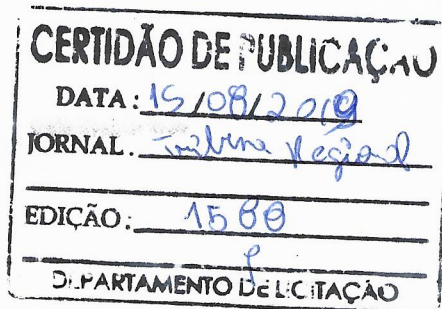 CERTIDÃO DE PUBLICAÇÃO
DATA: 15/08/2019
JORNAL. Tribuna Regional
EDIÇÃO: 1588
DEPARTAMENTO DE LICITAÇÃO